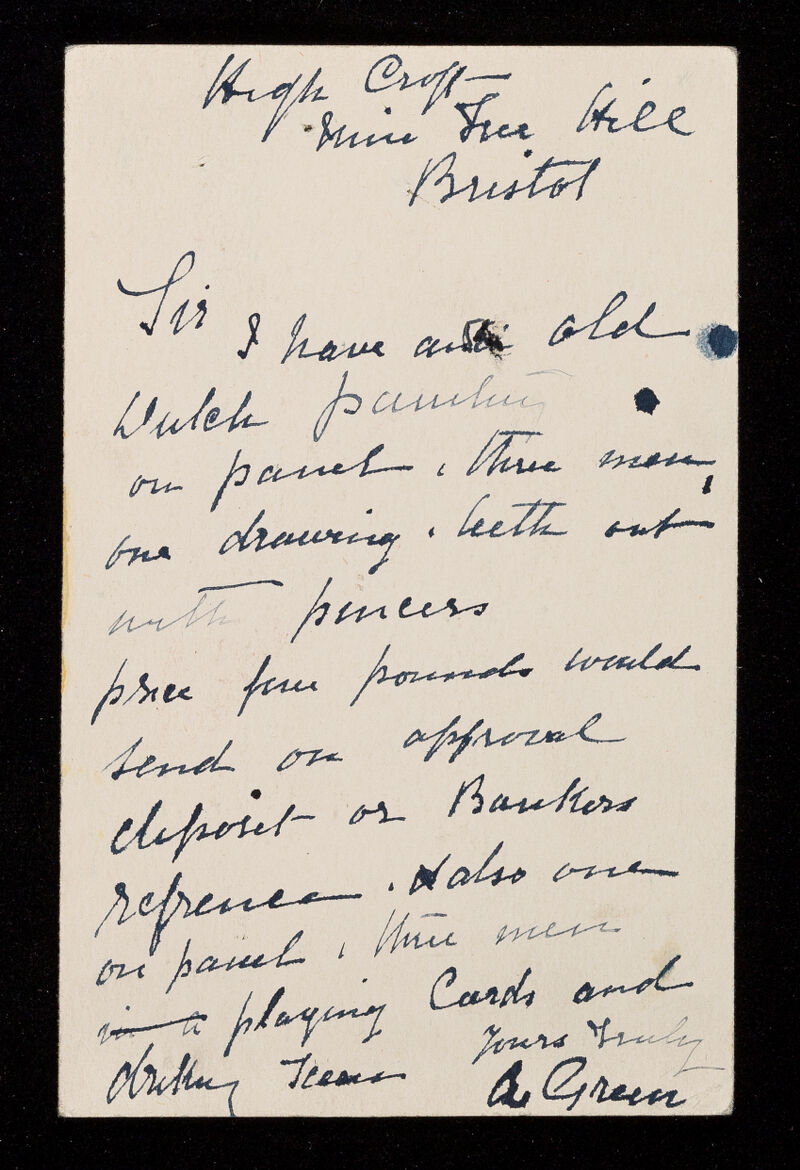 High Croft
Nine Tree Hill
Bristol
Sir
I have an old
Dutch painting
on panel, three men,
one drawing, teeth out
with pincers
price four pounds would
send on approval
deposit or Bankers
refrence. also one
on panel, three men
in a playing Cards and
drking
Yours Truly
A Green